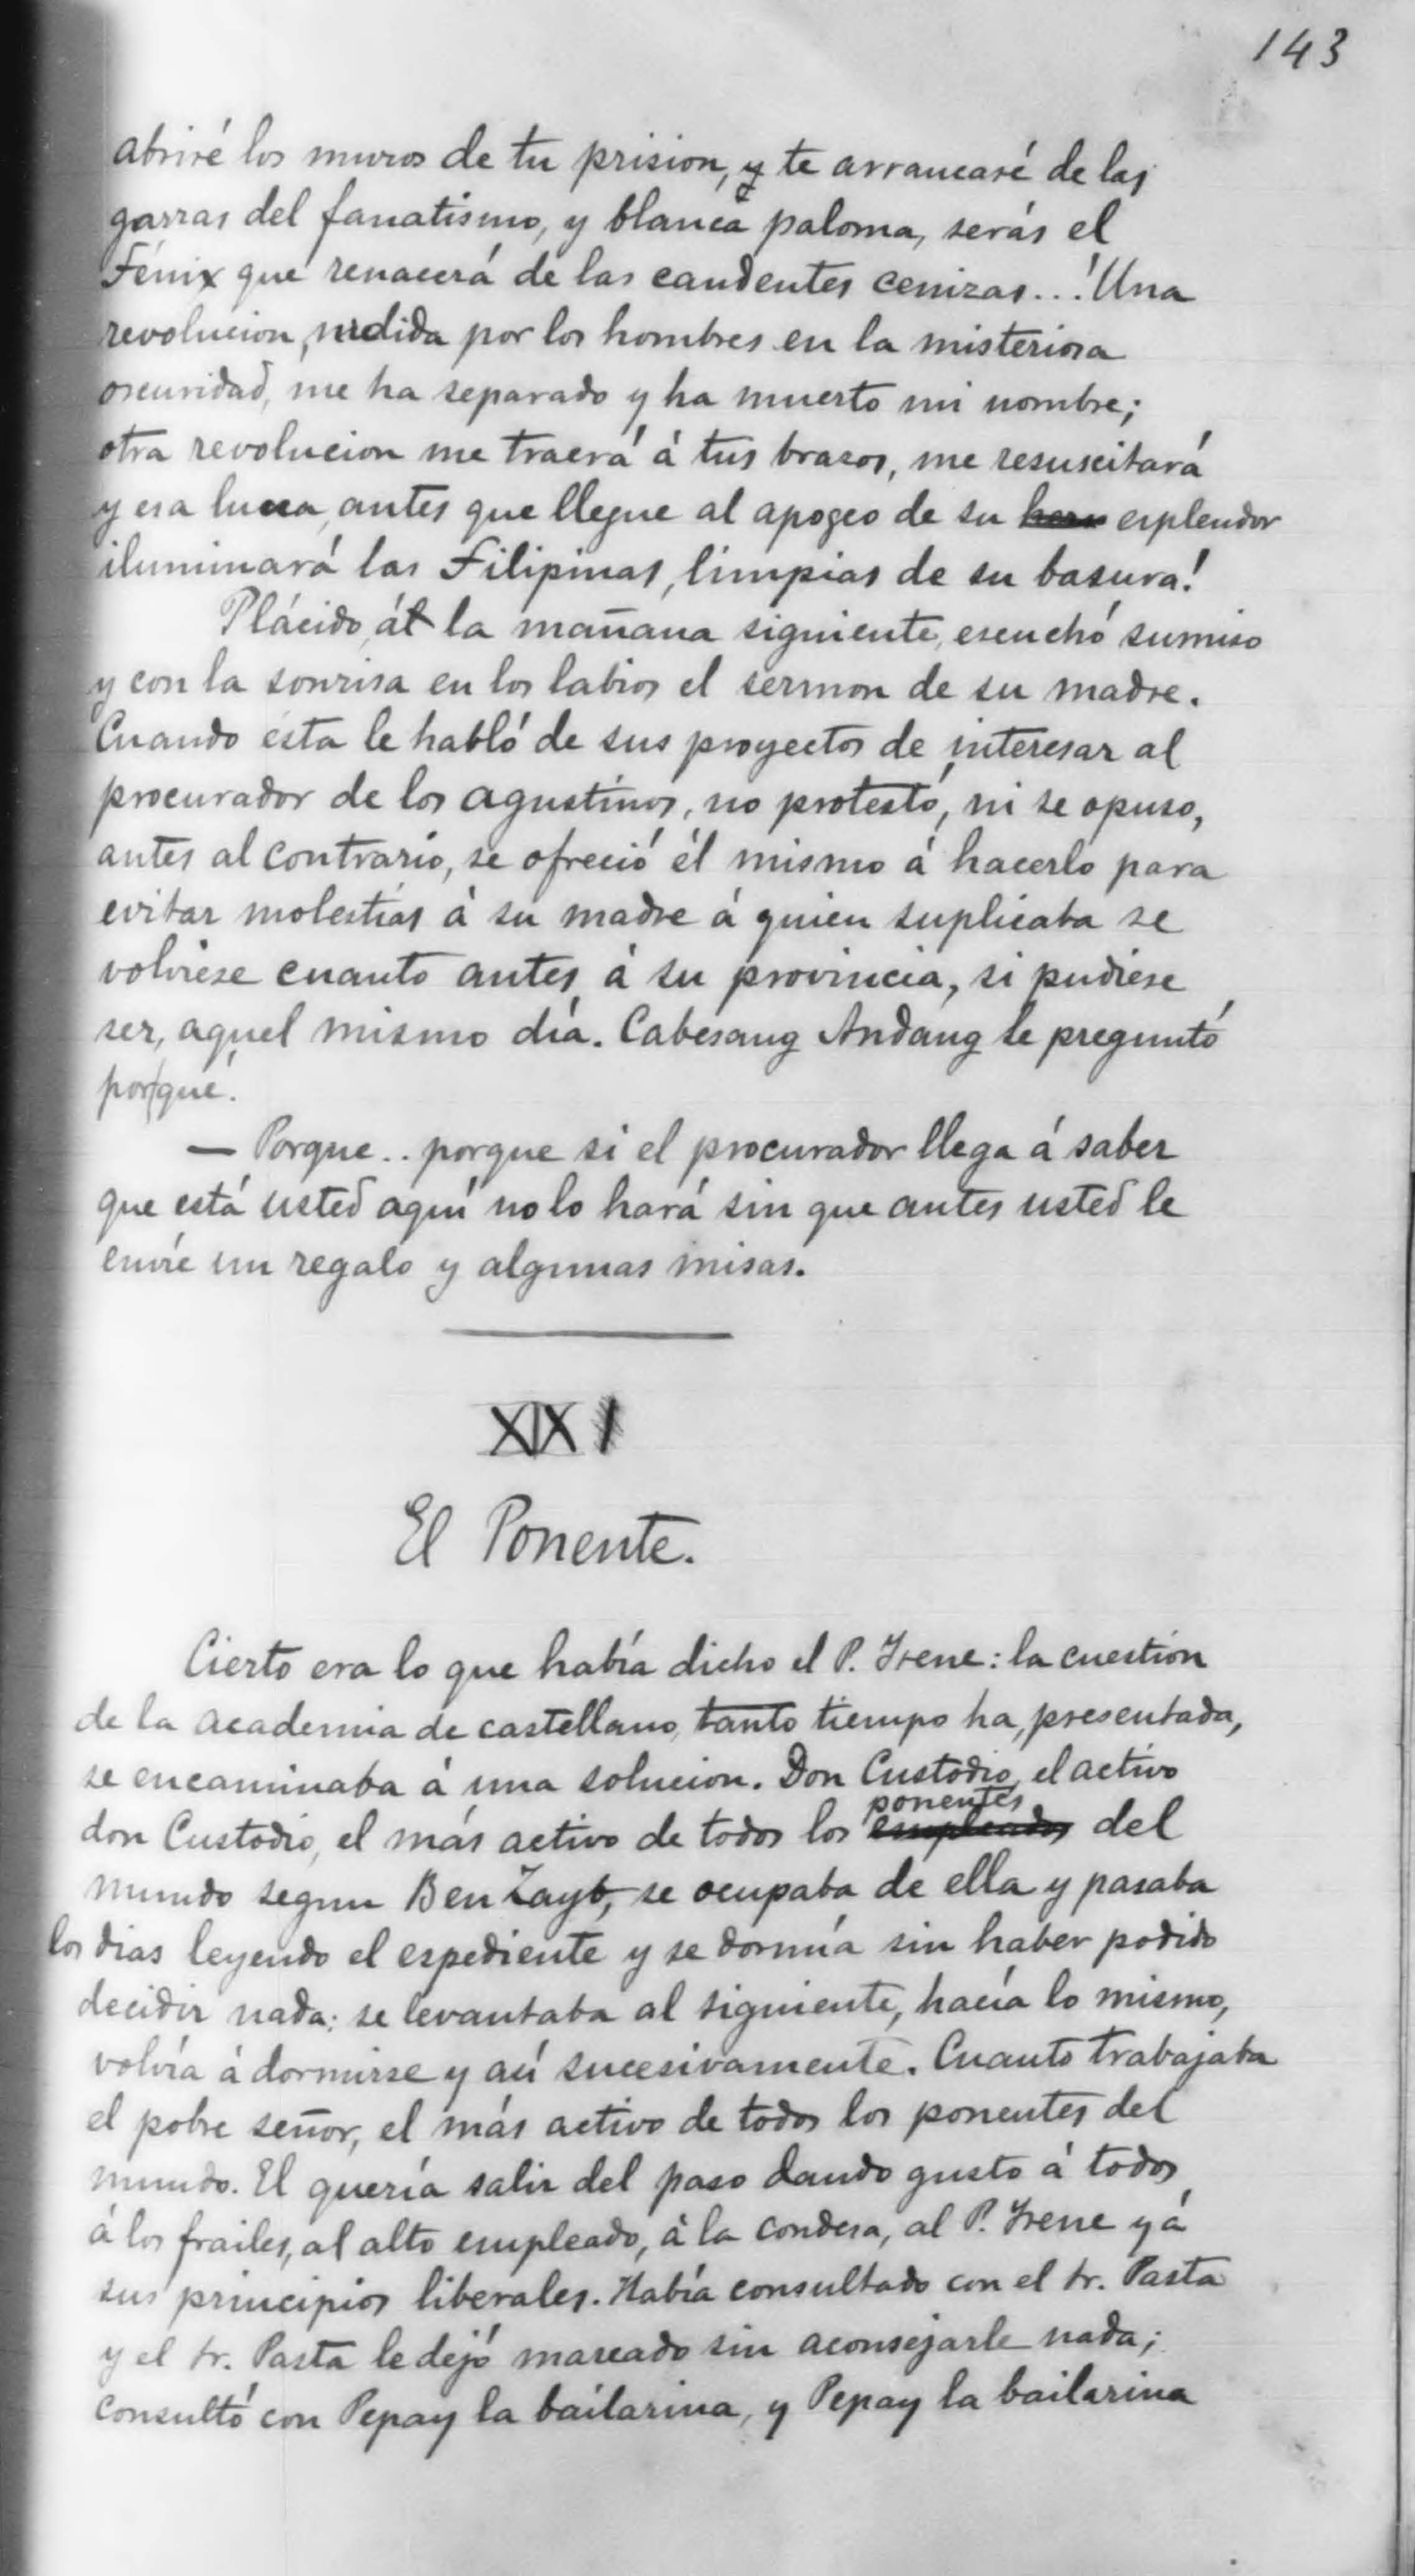 143
abriré los muros de tu prision, y te arrancaré de las
garras del fanatismo, y blanca paloma, serás el
Fénix que renacerá de las candentes cenizas...! Una
revolucion, urdida por los hombres en la misteriosa
oscuridad, me ha separado y ha muerto mi nombre;
otra revolucion me traerá á tus brazos, me resuscitará
y esa luna, antes que llegue al apogeo de su esplendor
iluminará las Filipinas, limpias de su basura!
Plácido, á la mañana siguiente, escuchó sumiso
y con la sonrisa en los labios el sermon de su madre.
Cuando esta le habló de sus proyectos de interesar al
procurador de los agustinos, no protestó, ni se opuso,
antes al contrario, se ofreció él mismo á hacerlo para
evitar molestias á su madre á quien suplicaba se
volviese cuanto antes á su provincia, si pudiese
ser, aquel mismo día. Cabesang Andang le preguntó
por qué.
— Porque.. porque si el procurador llega á saber
que está usted aquí no lo hará sin que antes usted le
envíe un regalo y algunas misas.
XIX
El Ponente.
Cierto era lo que había dicho el P. Irene: la cuestión
de la academia de castellano, tanto tiempo ha, presentada,
se encaminaba á una solucion. Don Custodio, el activo
don Custodio, el más activo de todos los empleados ponentes del
mundo segun Ben Zayb, se ocupaba de ella y pasaba
los dias leyendo el espediente y se dormía sin haber podido
decidir nada: se levantaba al siguiente, hacía lo mismo,
volvía á dormirse y así sucesivamente. Cuanto trabajaba
el pobre señor, el más activo de todos los ponentes del
mundo. El quería salir del paso dando gusto á todos,
á los frailes, al alto empleado, á la condesa, al P. Irene y á
sus principios liberales. Había consultado con el Sr. Pasta
y el Sr. Pasta le dejó mareado sin aconsejarle nada;
consultó con Pepay la bailarina, y Pepay la bailarina